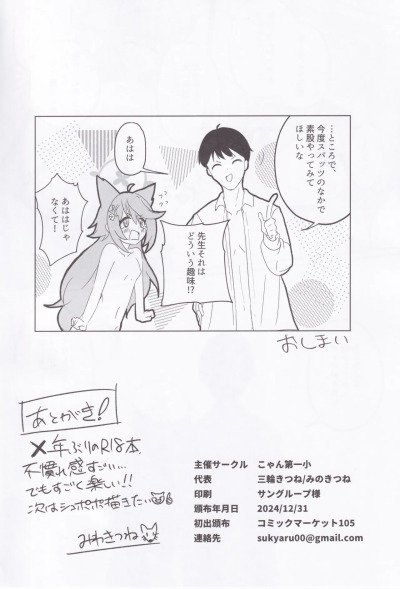 …ところで、
今度スパッツのなかで
素股やってみて
ほしいな
あはは
先生それは
どういう趣味!?
あははじゃ
なくて!
おしまい
あとがき!
X年ぶりのR18本、
不慣れ感すごい…
でもすごく楽しい!!
次はシュポポ描きたい
みわきつね
主催サークル こゃん第一小
代表 三輪きつね/みのきつね
印刷 サングループ様
頒布年月日 2024/12/31
初出頒布 コミックマーケット105
連絡先 sukyaru00@gmail.com